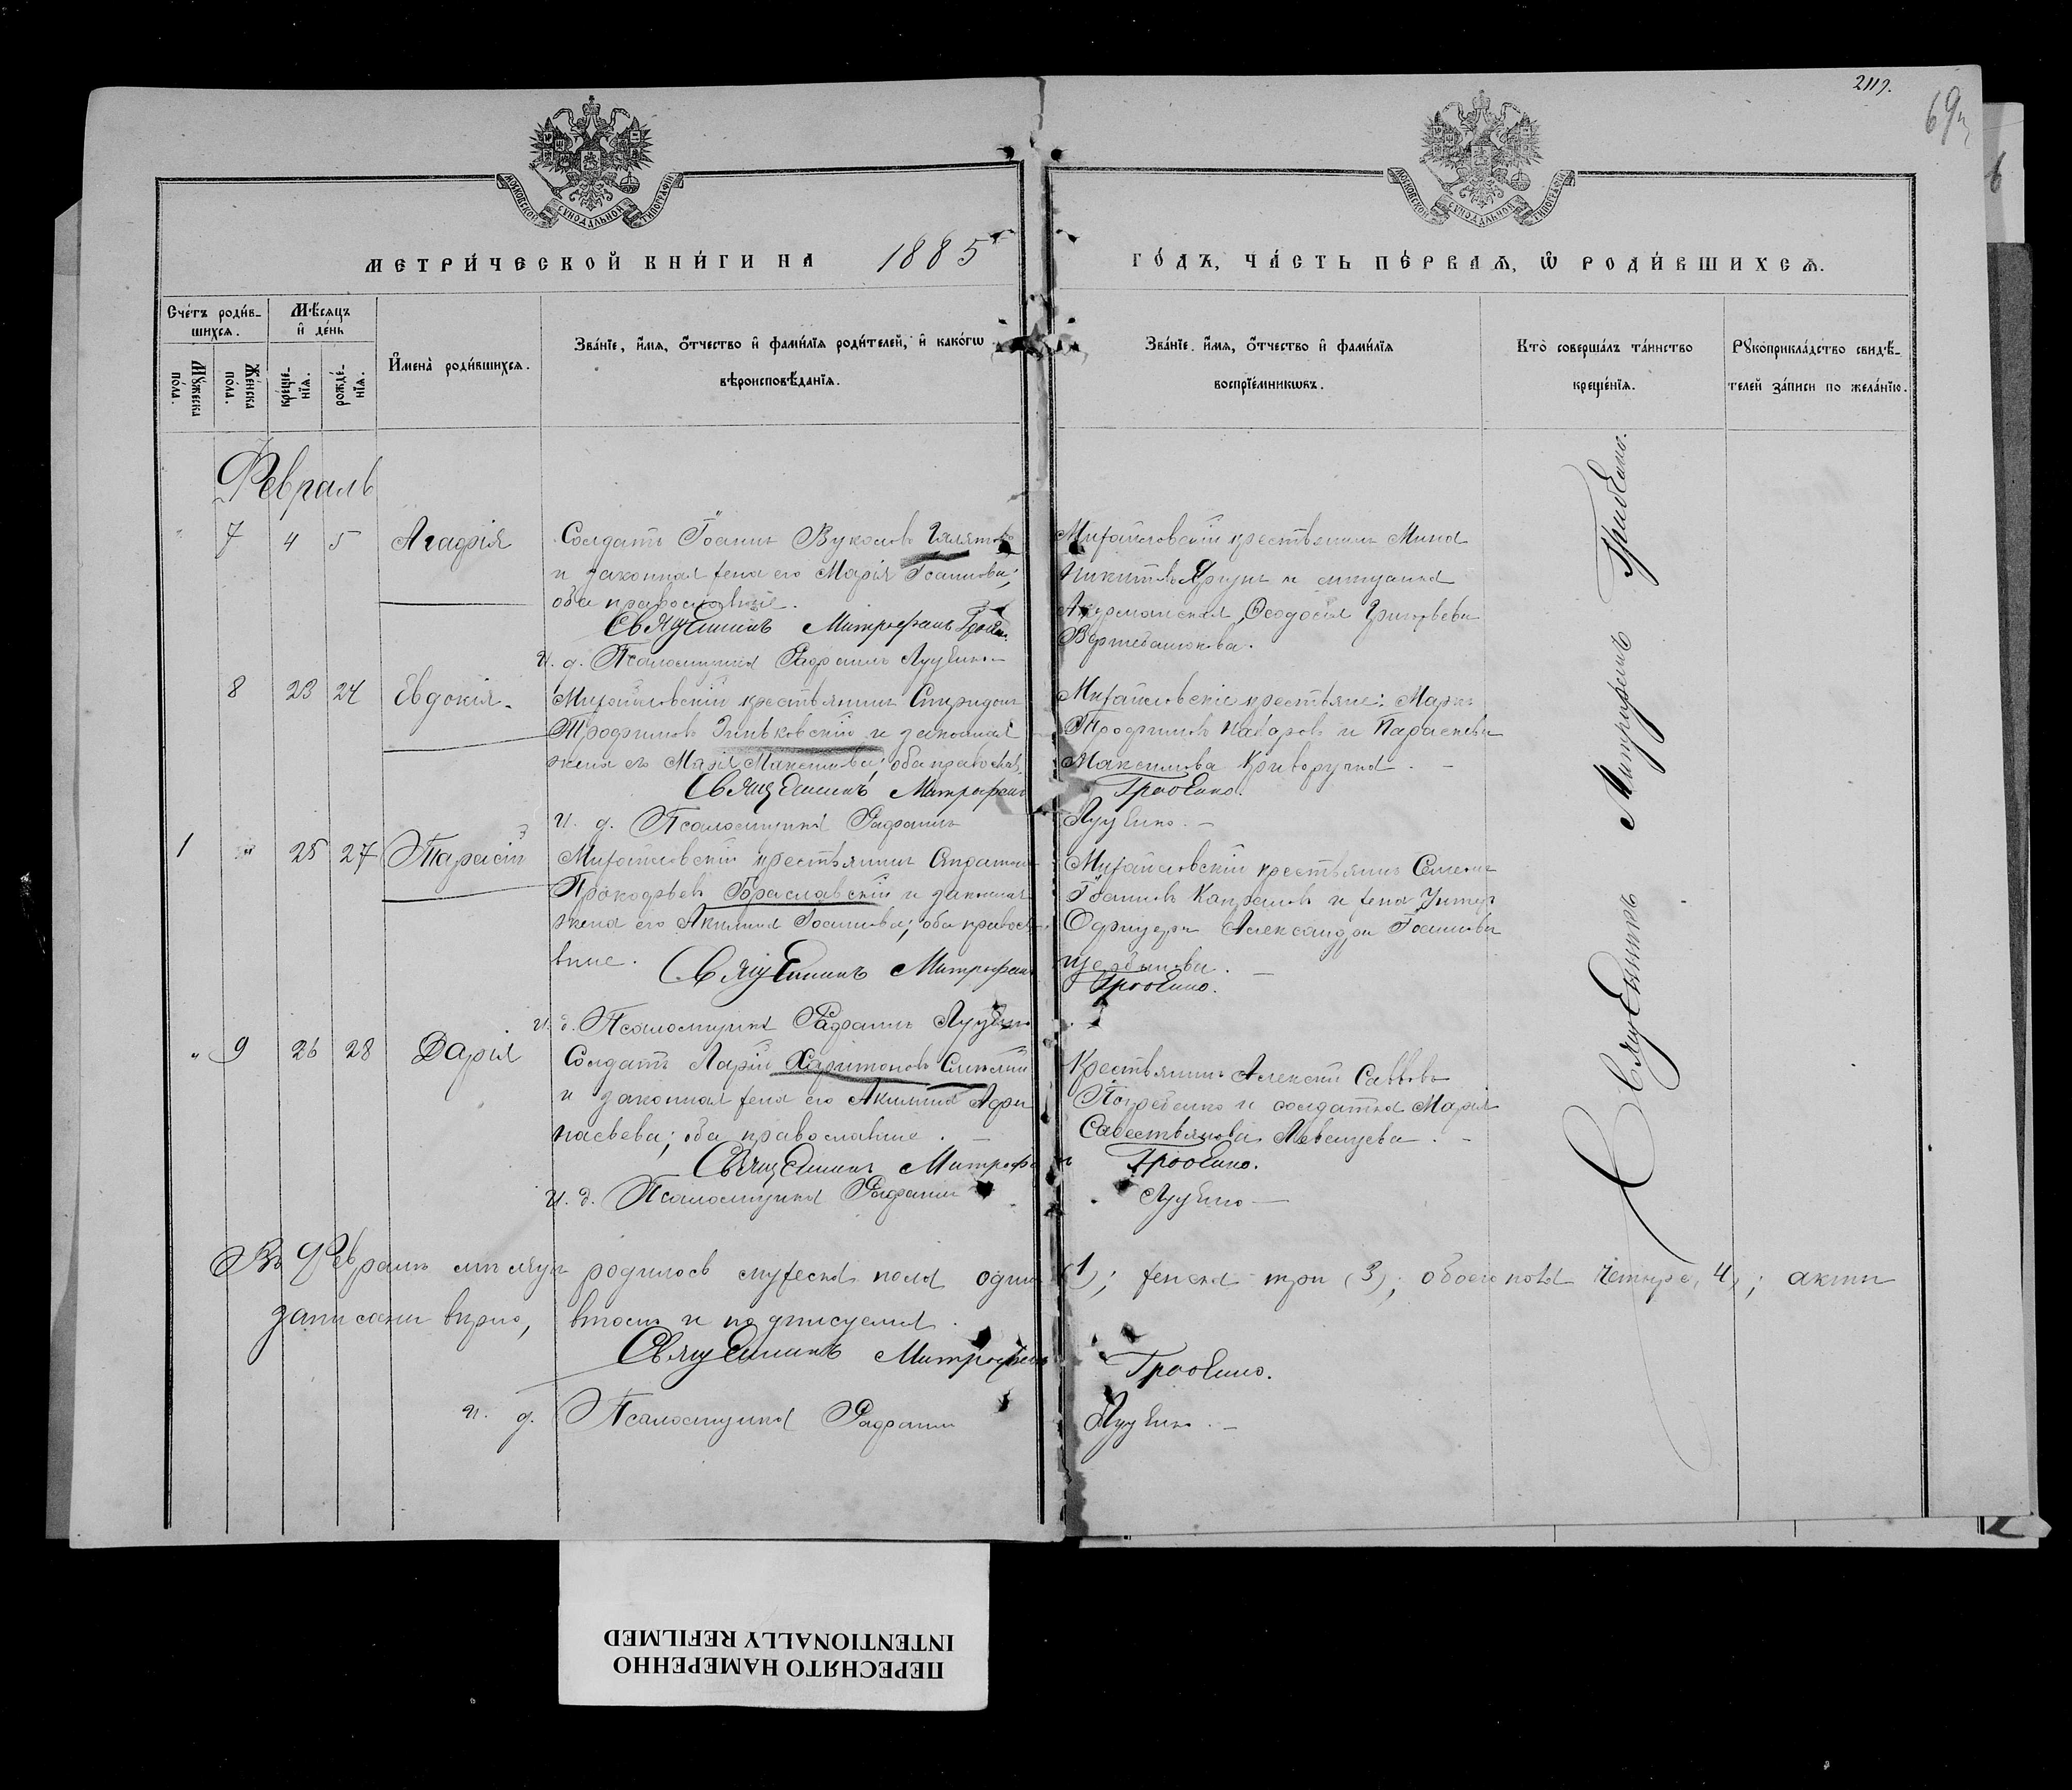 2119.
69
МОСКОВСКОЙ СУНОДАЛЬНОЙ ТИПОГРАФІИ
МОСКОВСКОЙ СУНОДАЛЬНОЙ ТИПОГРАФІИ
МЕТРИ́ЧЕСКОЙ КНИ́ГИ НА 1885 ГО́ДЪ, ЧА́СТЬ ПЕ́РВАѦ, Ѡ҆ РОДИ́ВШИХСѦ.
Сче́тъ роди́в-
шихсѧ.
Мѣ́сѧцъ
и҆ де́нь
Мꙋ́жеска
по́ла.
Же́нска
по́ла.
креще́-
нїѧ.
рожде́-
нїѧ.
И҆мена̀ роди́вшихсѧ.
Зва́нїе, и҆́мѧ, ѻ҆́тчество и҆ фами́лїѧ роди́телей, и҆ како́гѡ
вѣроисповѣ́данїѧ.
Зва́нїе, и҆́мѧ, ѻ҆́тчество и҆ фами́лїѧ
воспрїе́мникѡвъ.
Кто̀ соверша́лъ та́инство
креще́нїѧ.
Рꙋкоприкла́дство свидѣ́-
телей за́писи по жела́нїю.
Февраль
" 7 4 5 Агафія
Солдатъ Іоаннъ Вуколовъ
и законная жена его Марія Іоаннова;
оба православные.
Священникъ Митрофанъ Гробенко.
И. д. Псаломщика
Михайловскій крестьянинъ Мина
Никитинъ и мещанка
Акерманская Ѳеодосія Григорьева
8 23 24 Евдокія.
Михайловскій крестьянинъ Спиридонъ
Трофимовъ Зиньковскій и законная
жена его Марія Максимова; оба правосл.
Священникъ Митрофанъ Гробенко.
И. д. Псаломщика
Михайловскіе крестьяне: Марко
Трофимовъ Назаровъ и Параскева
Максимова Криворучка. –
1 " 25 27 Тарасій
Михайловскій крестьянинъ
Прокофьевъ Браславскій и законная
жена его Акилина Іоаннова; оба правосла-
вные.
Священникъ Митрофанъ Гробенко.
И. д. Псаломщика
Михайловскій крестьянинъ Семенъ
Іоанновъ Капраловъ и жена Унтеръ
Офицера Александра Іоаннова
Щербинова. –
" 9 26 28 Дарія
Солдатъ Ларій Харитоновъ
и законная жена его Акилина Афа
насьева; оба православные. –
Священникъ Митрофанъ Гробенко.
И. д. Псаломщика
Крестьянинъ Алексій Саввовъ
Погребенко и солдатка Марія
Савестьянова Левенцева. –
Священникъ Митрофанъ Гробенко.
Въ Февралѣ мѣсяцѣ родилось мужеска пола одинъ (1); женска три (3); обоего пола четыре (4); акты
записаны вѣрно, въ томъ и подписуемся.
Священникъ Митрофанъ Гробенко.
и. д. Псаломщика
ПЕРЕСНЯТО НАМЕРЕННО
INTENTIONALLY REFILMED